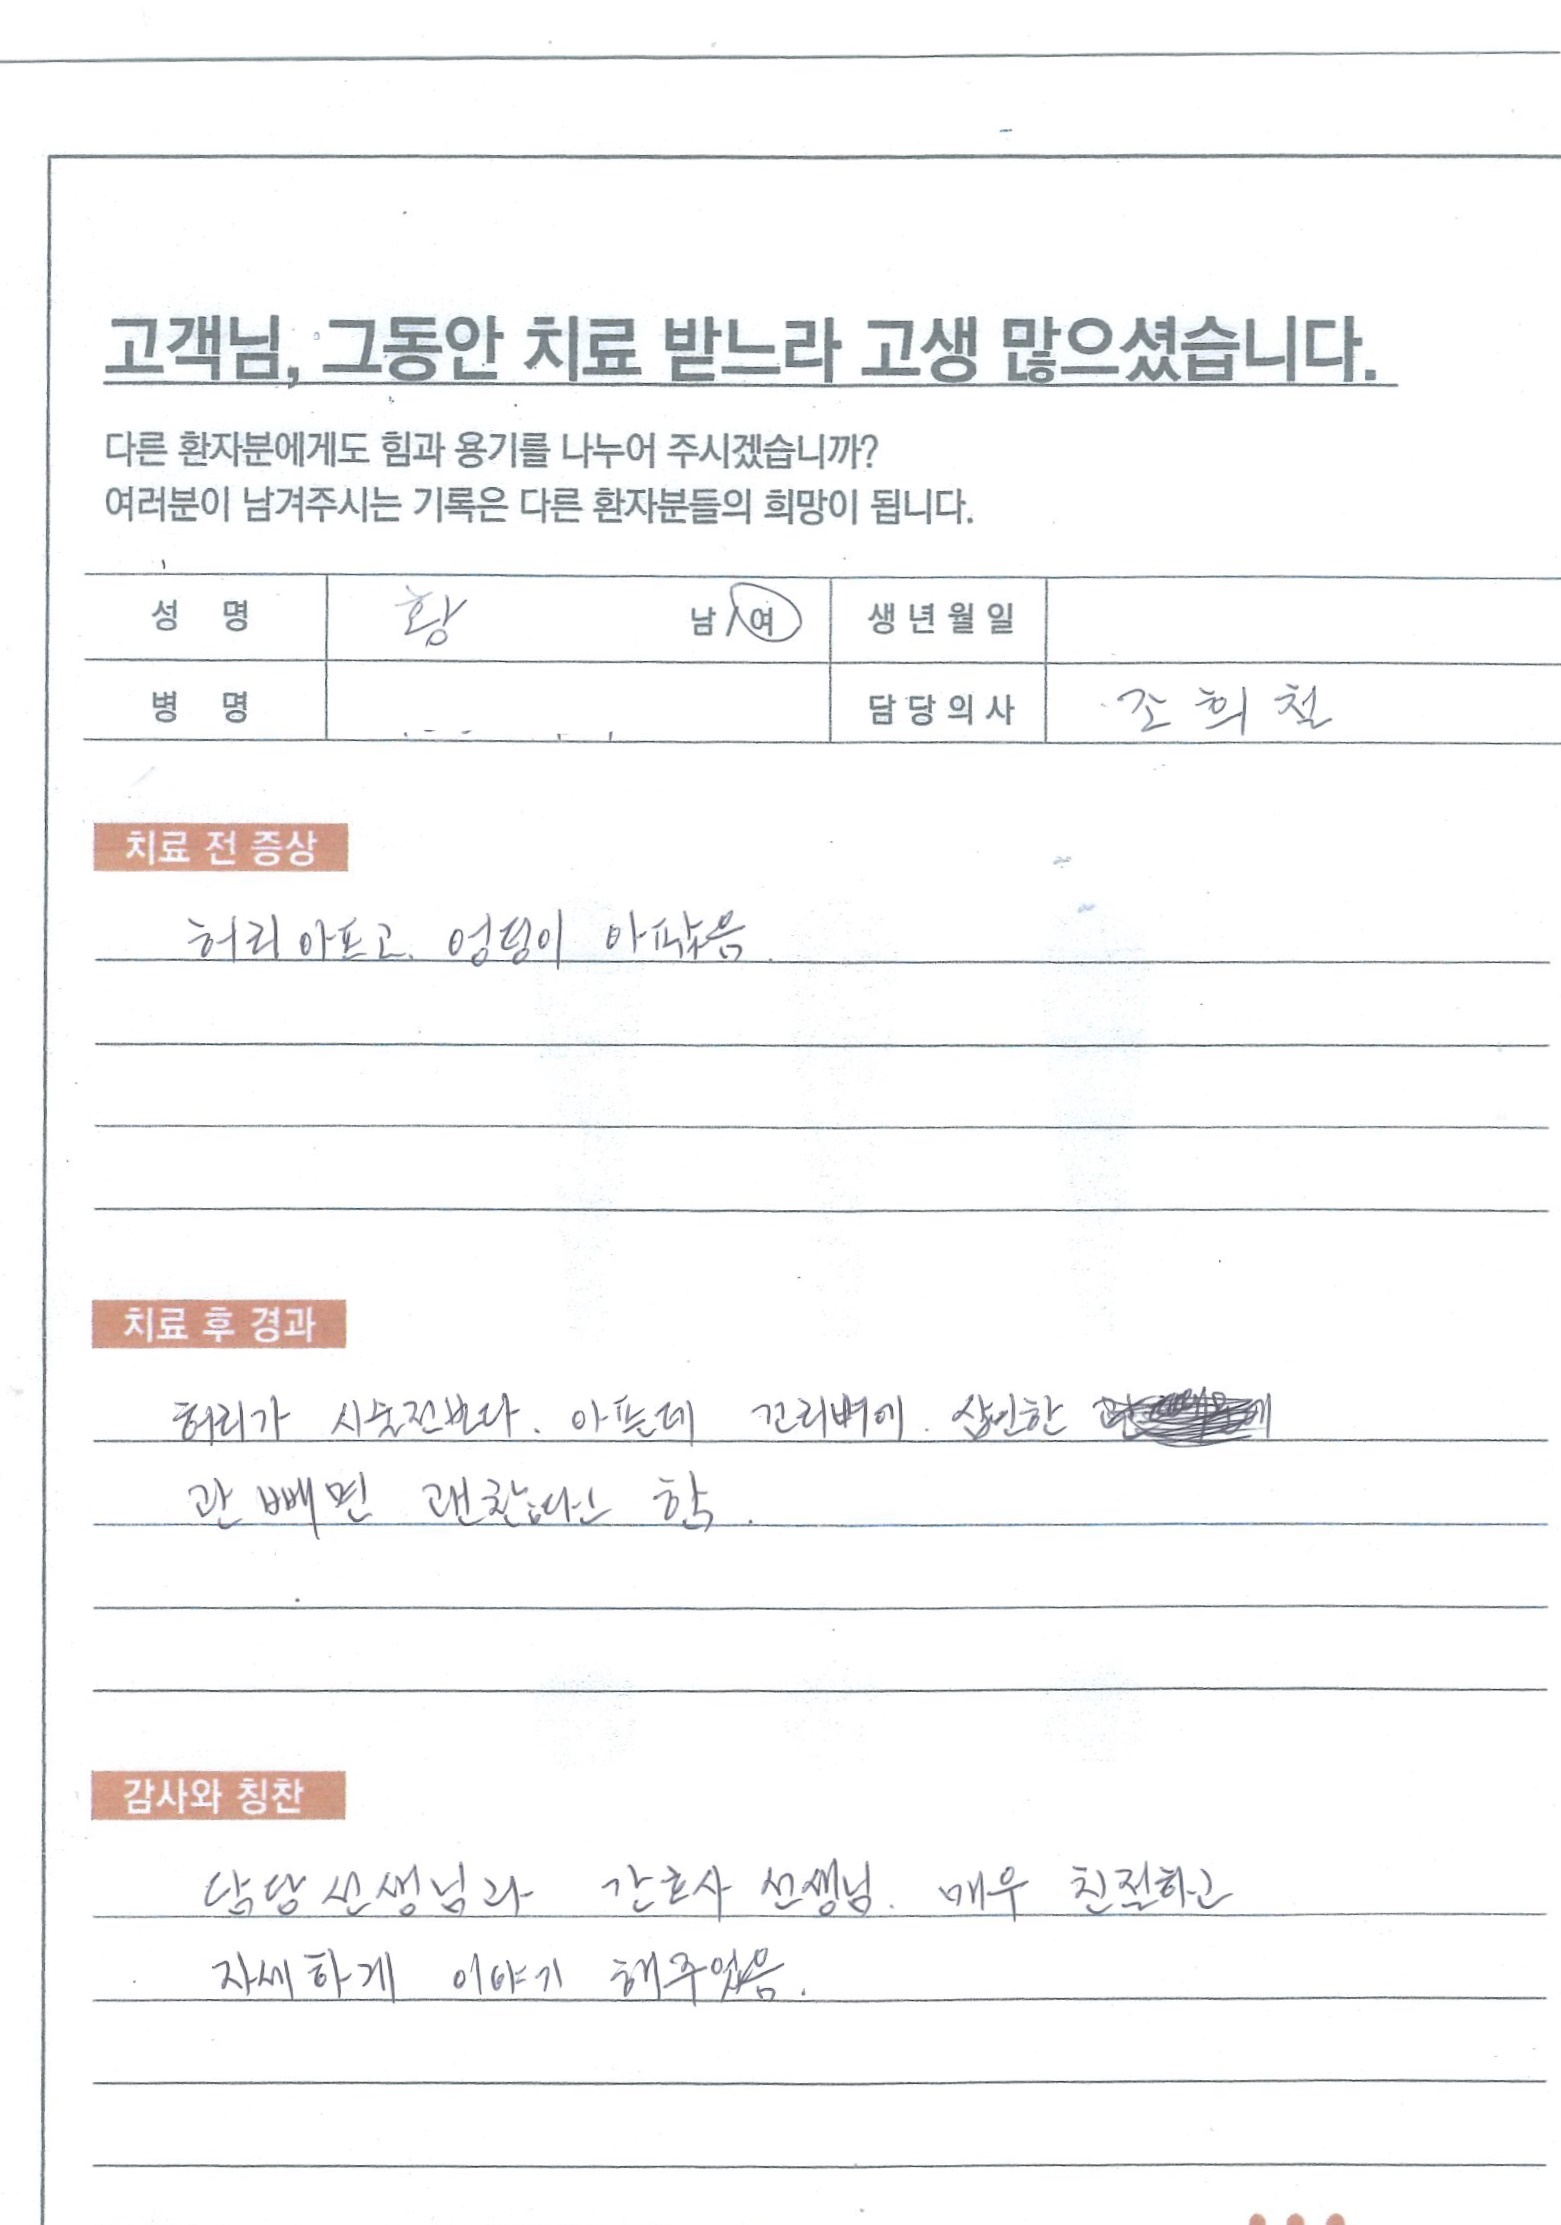 고객님, 그동안 치료 받느라 고생 많으셨습니다.
다른 환자분에게도 힘과 용기를 나누어 주시겠습니까?
여러분이 남겨주시는 기록은 다른 환자분들의 희망이 됩니다.
성 명 황 남/여 생년월일
병 명 담당의사 조희철
치료 전 증상
허리아프고. 엉덩이 아팠음.
치료 후 경과
허리가 시술전보다. 아픈데 꼬리뼈에. 삽입한
관 빼면 괜찮다고 함.
감사와 칭찬
담당선생님과 간호사 선생님. 매우 친절하고
자세하게 이야기 해주었음.